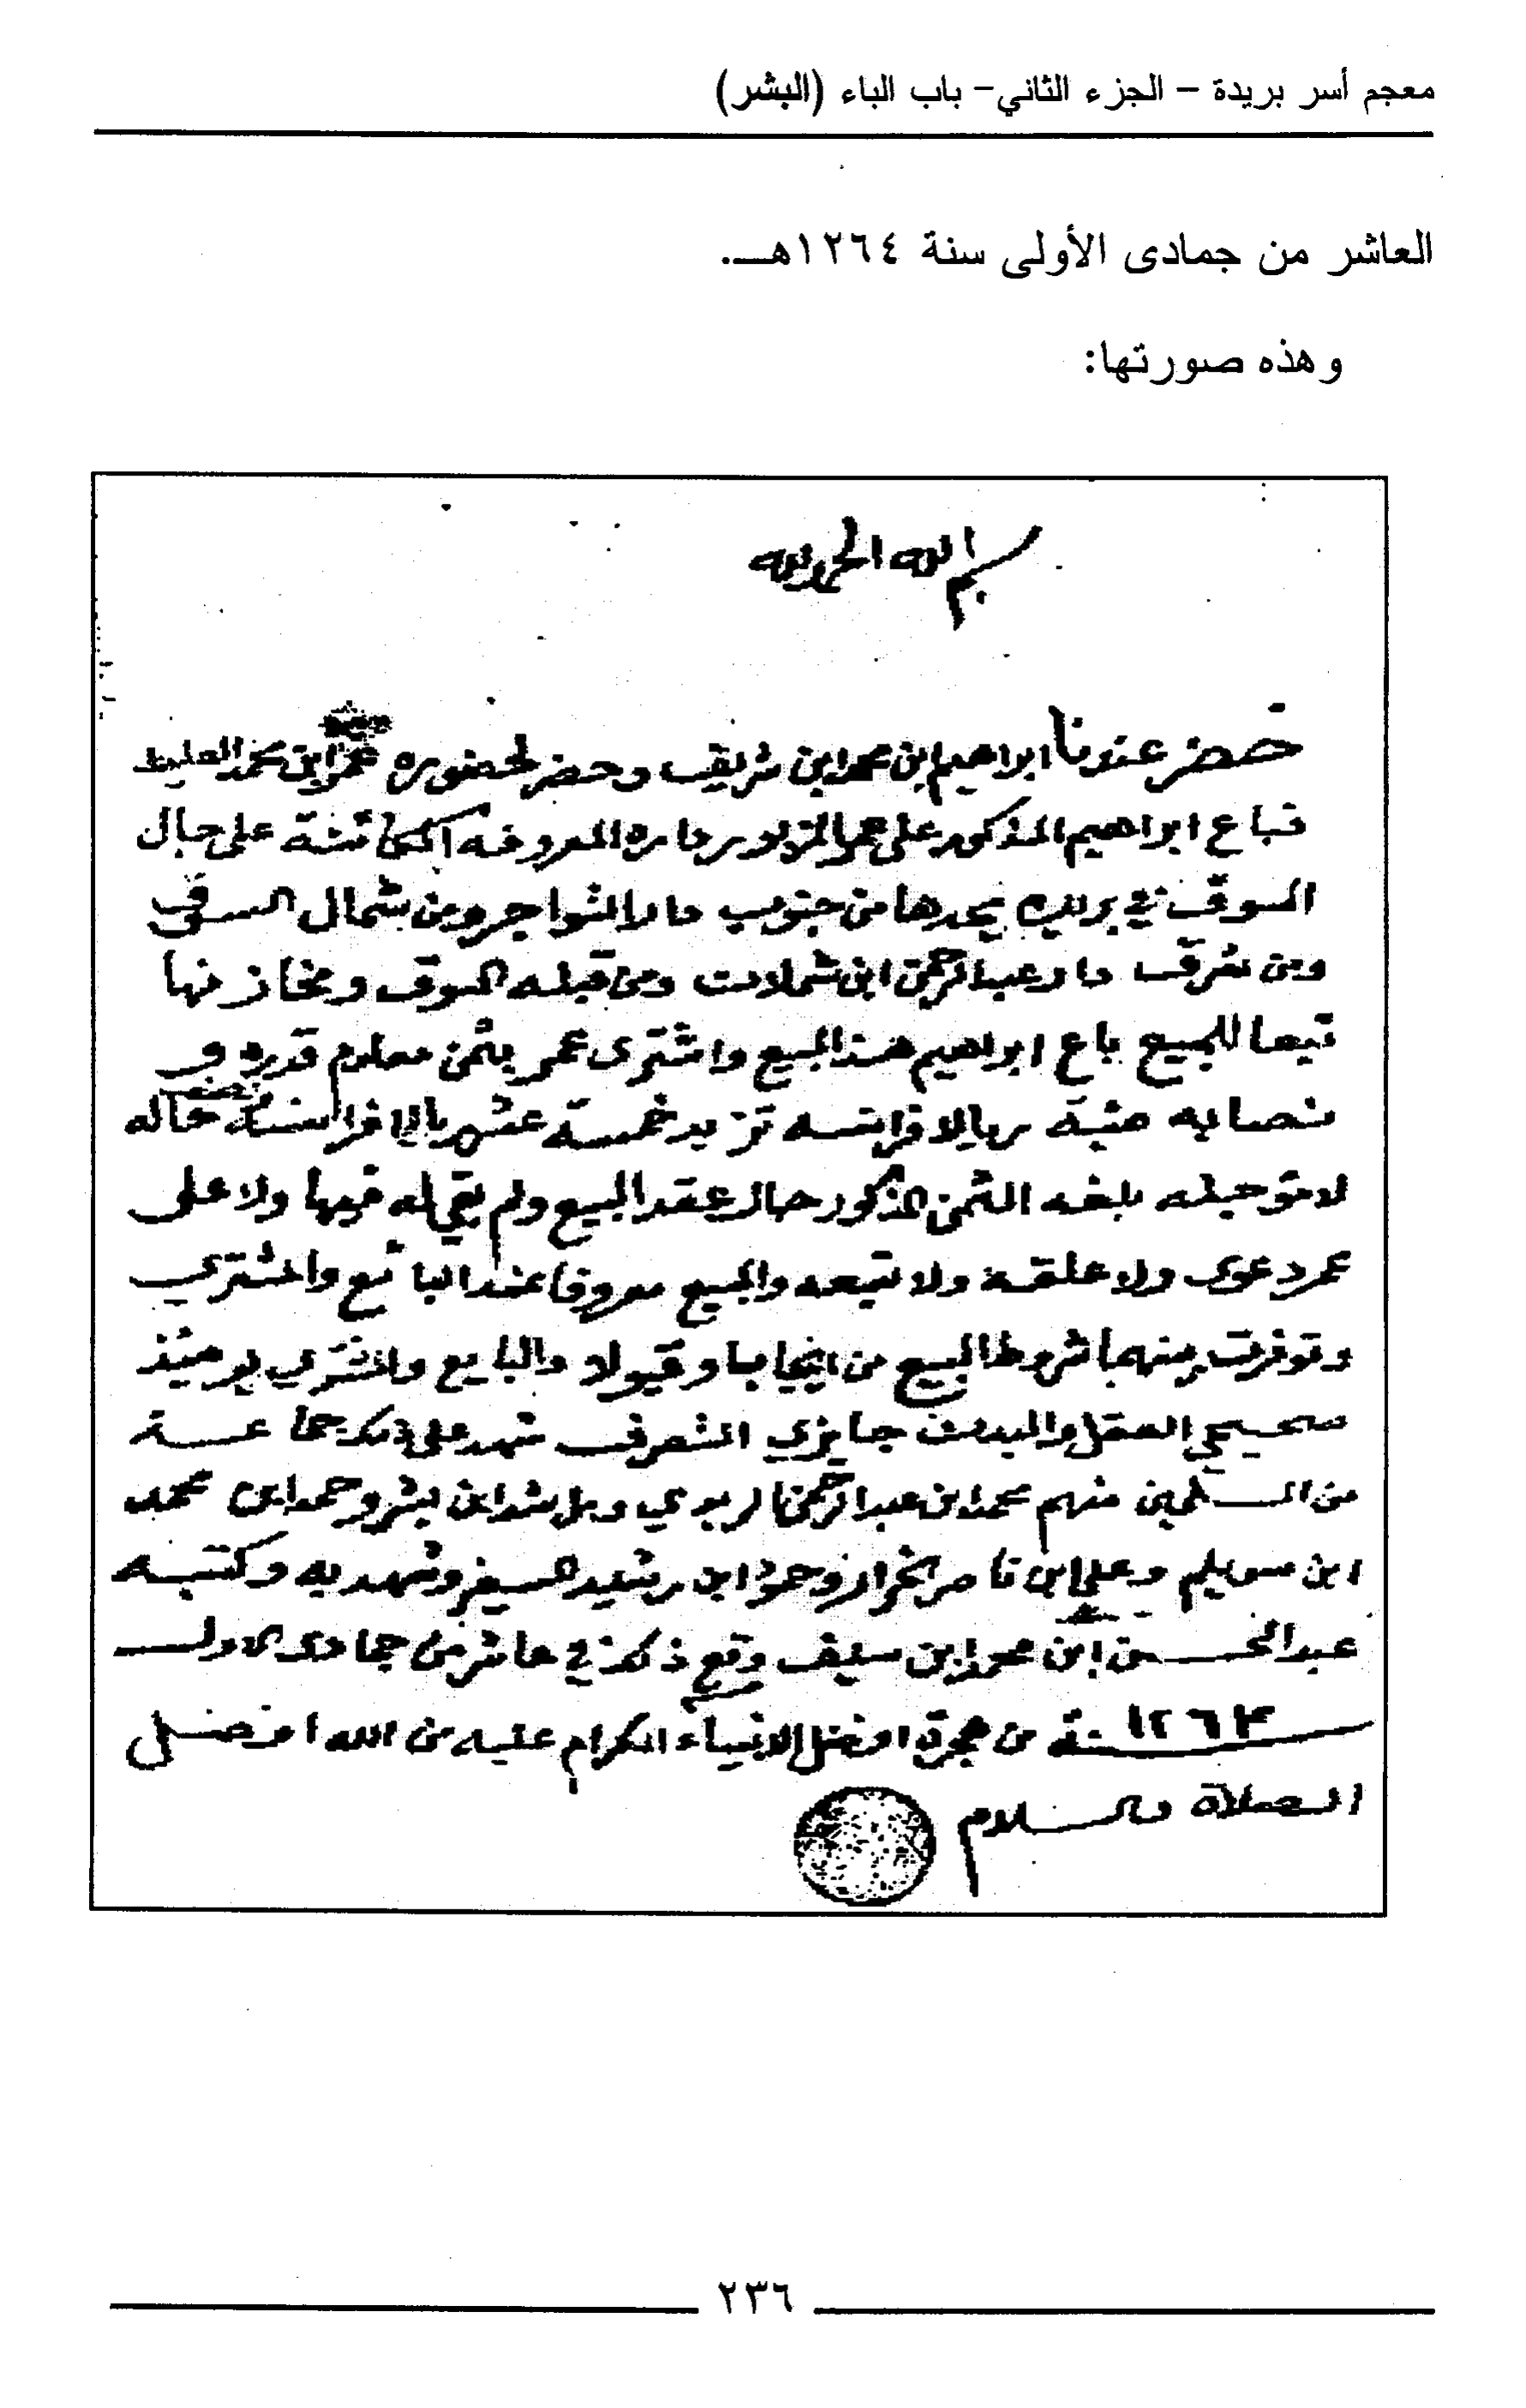 معجم أسر بريدة – الجزء الثاني– باب الباء (البشر)
العاشر من جمادى الأولى سنة ١٢٦٤هـ.
وهذه صورتها:
بسم الله الحمد لله
حضر عندنا ابراهيم ابن محمد ابن شريف وحضر لحضوره عمر ابن محمد العليط
فباع ابراهيم المذكور على عمر المزبور داره المعروفه الكائنة على جال
السوق في بريده يحدها من جنوب دار الشواجر ومن شمال السوق
ومن شرق دار عبدالرحمن ابن شملان ومن قبله السوق ومخازنها
تبعا للمبيع باع ابراهيم هذا المبيع واشترى عمر بثمن معلوم قدره و
نصابه مية ريال فرانسه تزيد خمسة عشر ريال فرانسة حاله
لا مؤجله بلغه الثمن المذكور حال عقد البيع ولم يبقى له فيها ولا على
عمر دعوى ولا علقة ولا تبعه والمبيع معروفا عند البائع والمشتري
وتوفرت منهما شروط البيع من ايجابا وقبولا والبايع والمشتري يومئذ
صحيحي العقل والبدن جايزي التصرف شهد على ذلك جماعة
من المسلمين منهم محمد ابن عبدالرحمن الربدي وراشد ابن بشر وحمد ابن محمد
ابن سويلم وعلي ابن ناصر الخراز وحمود ابن رشيد السيف وشهد به وكتبه
عبدالمحسن ابن محمد ابن سيف وقع ذلك في عاشر من جمادى الاول
سنة ١٢٦٤ من هجرة افضل الانبياء الكرام عليه من الله افضل
الصلاة والسلام
٢٣٦